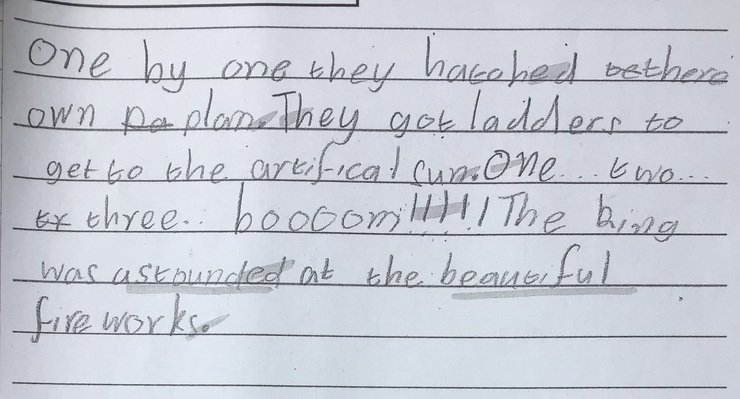 One by one they hatched there
own pa plan. They got ladders to
get to the artifical sun. One... two...
tx three... boooom!!!!!! The king
was astounded at the beautiful
fire works.